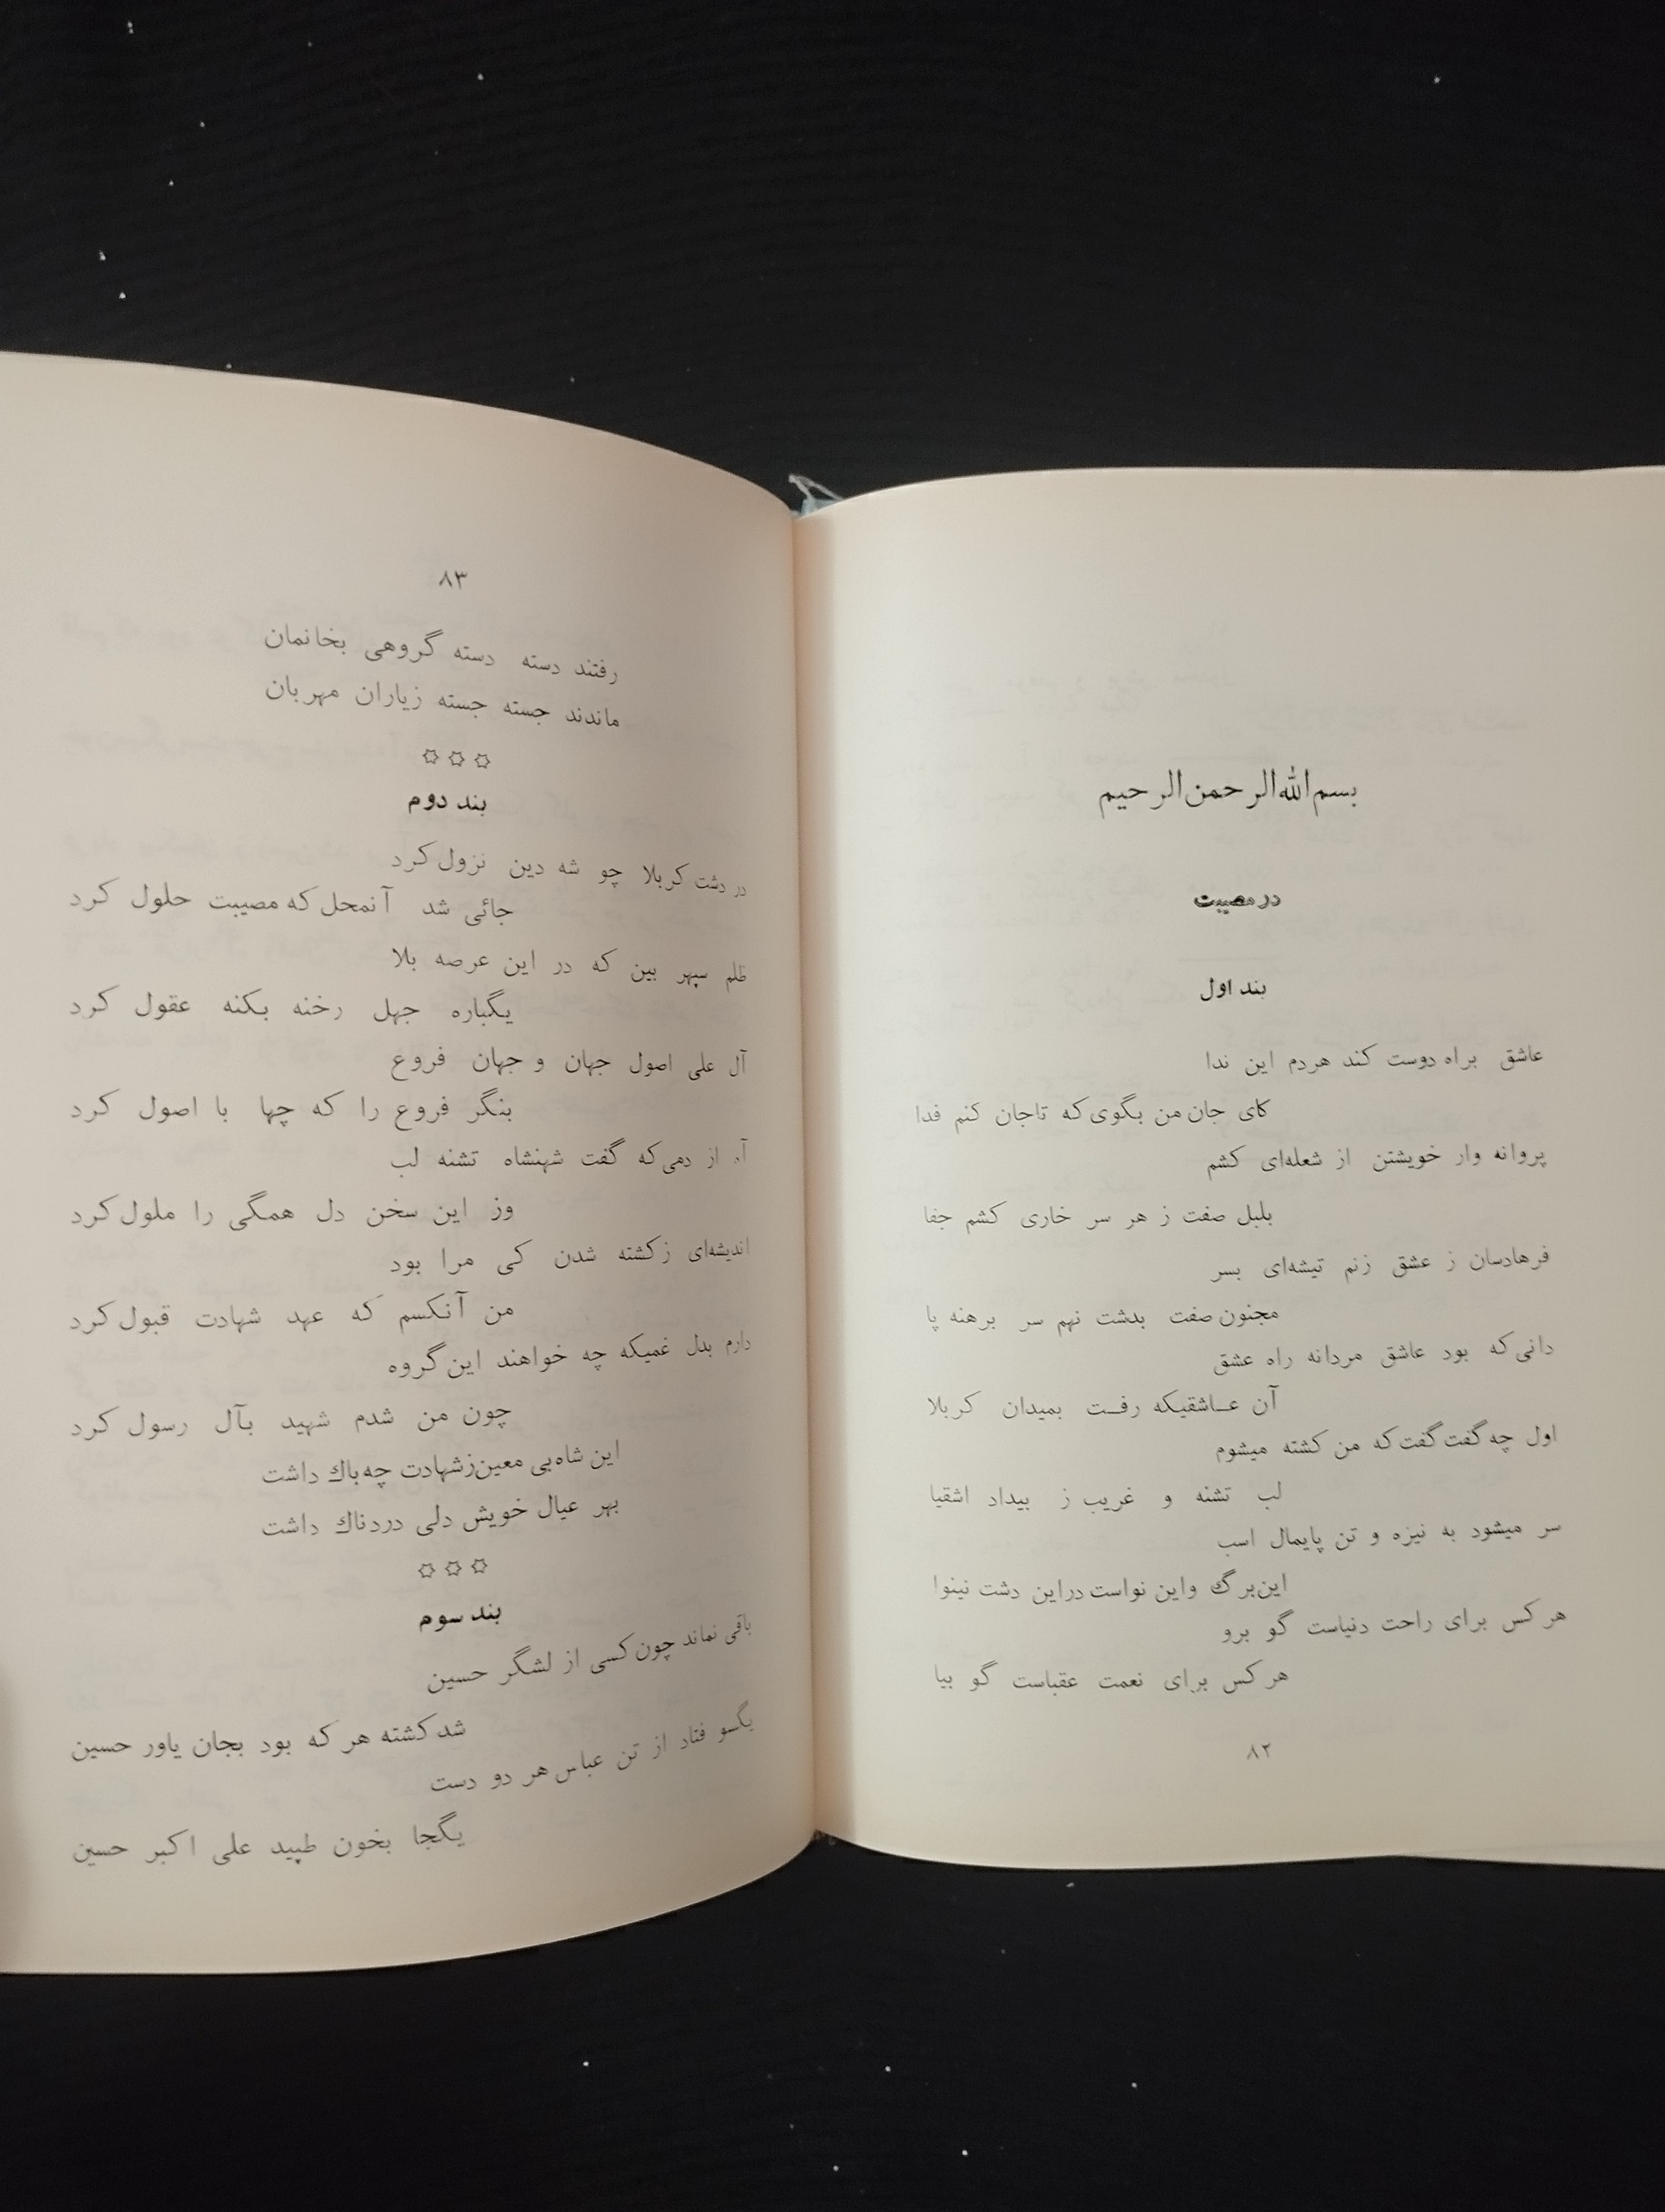 بسم‌الله‌الرحمن‌الرحیم
در مصیبت
بند اول
عاشق براه دوست کند هردم این ندا
کای جان من بگوی که تاجان کنم فدا
پروانه وار خویشتن از شعله‌ای کشم
بلبل صفت ز هر سر خاری کشم جفا
فرهادسان ز عشق زنم تیشه‌ای بسر
مجنون صفت بدشت نهم سر برهنه پا
دانی که بود عاشق مردانه راه عشق
آن عاشقیکه رفت بمیدان کربلا
اول چه گفت گفت که من کشته میشوم
لب تشنه و غریب ز بیداد اشقیا
سر میشود به نیزه و تن پایمال اسب
این برگ واین نواست دراین دشت نینوا
هرکس برای راحت دنیاست گو برو
هرکس برای نعمت عقباست گو بیا
۸۲
۸۳
رفتند دسته دسته گروهی بخانمان
ماندند جسته جسته زیاران مهربان
بند دوم
در دشت کربلا چو شه دین نزول کرد
جائی شد آنمحل که مصیبت حلول کرد
ظلم سپهر بین که در این عرصه بلا
یگباره جهل رخنه بکنه عقول کرد
آل علی اصول جهان و جهان فروع
بنگر فروع را که چها با اصول کرد
آه از دمی که گفت شهنشاه تشنه لب
وز این سخن دل همگی را ملول کرد
اندیشه‌ای زکشته شدن کی مرا بود
من آنکسم که عهد شهادت قبول کرد
دارم بدل غمیکه چه خواهند این گروه
چون من شدم شهید بآل رسول کرد
این شاه بی معین زشهادت چه باك داشت
بهر عیال خویش دلی دردناك داشت
بند سوم
باقی نماند چون کسی از لشگر حسین
شد کشته هر که بود بجان یاور حسین
یگسو فتاد از تن عباس هر دو دست
یگجا بخون طپید علی اکبر حسین